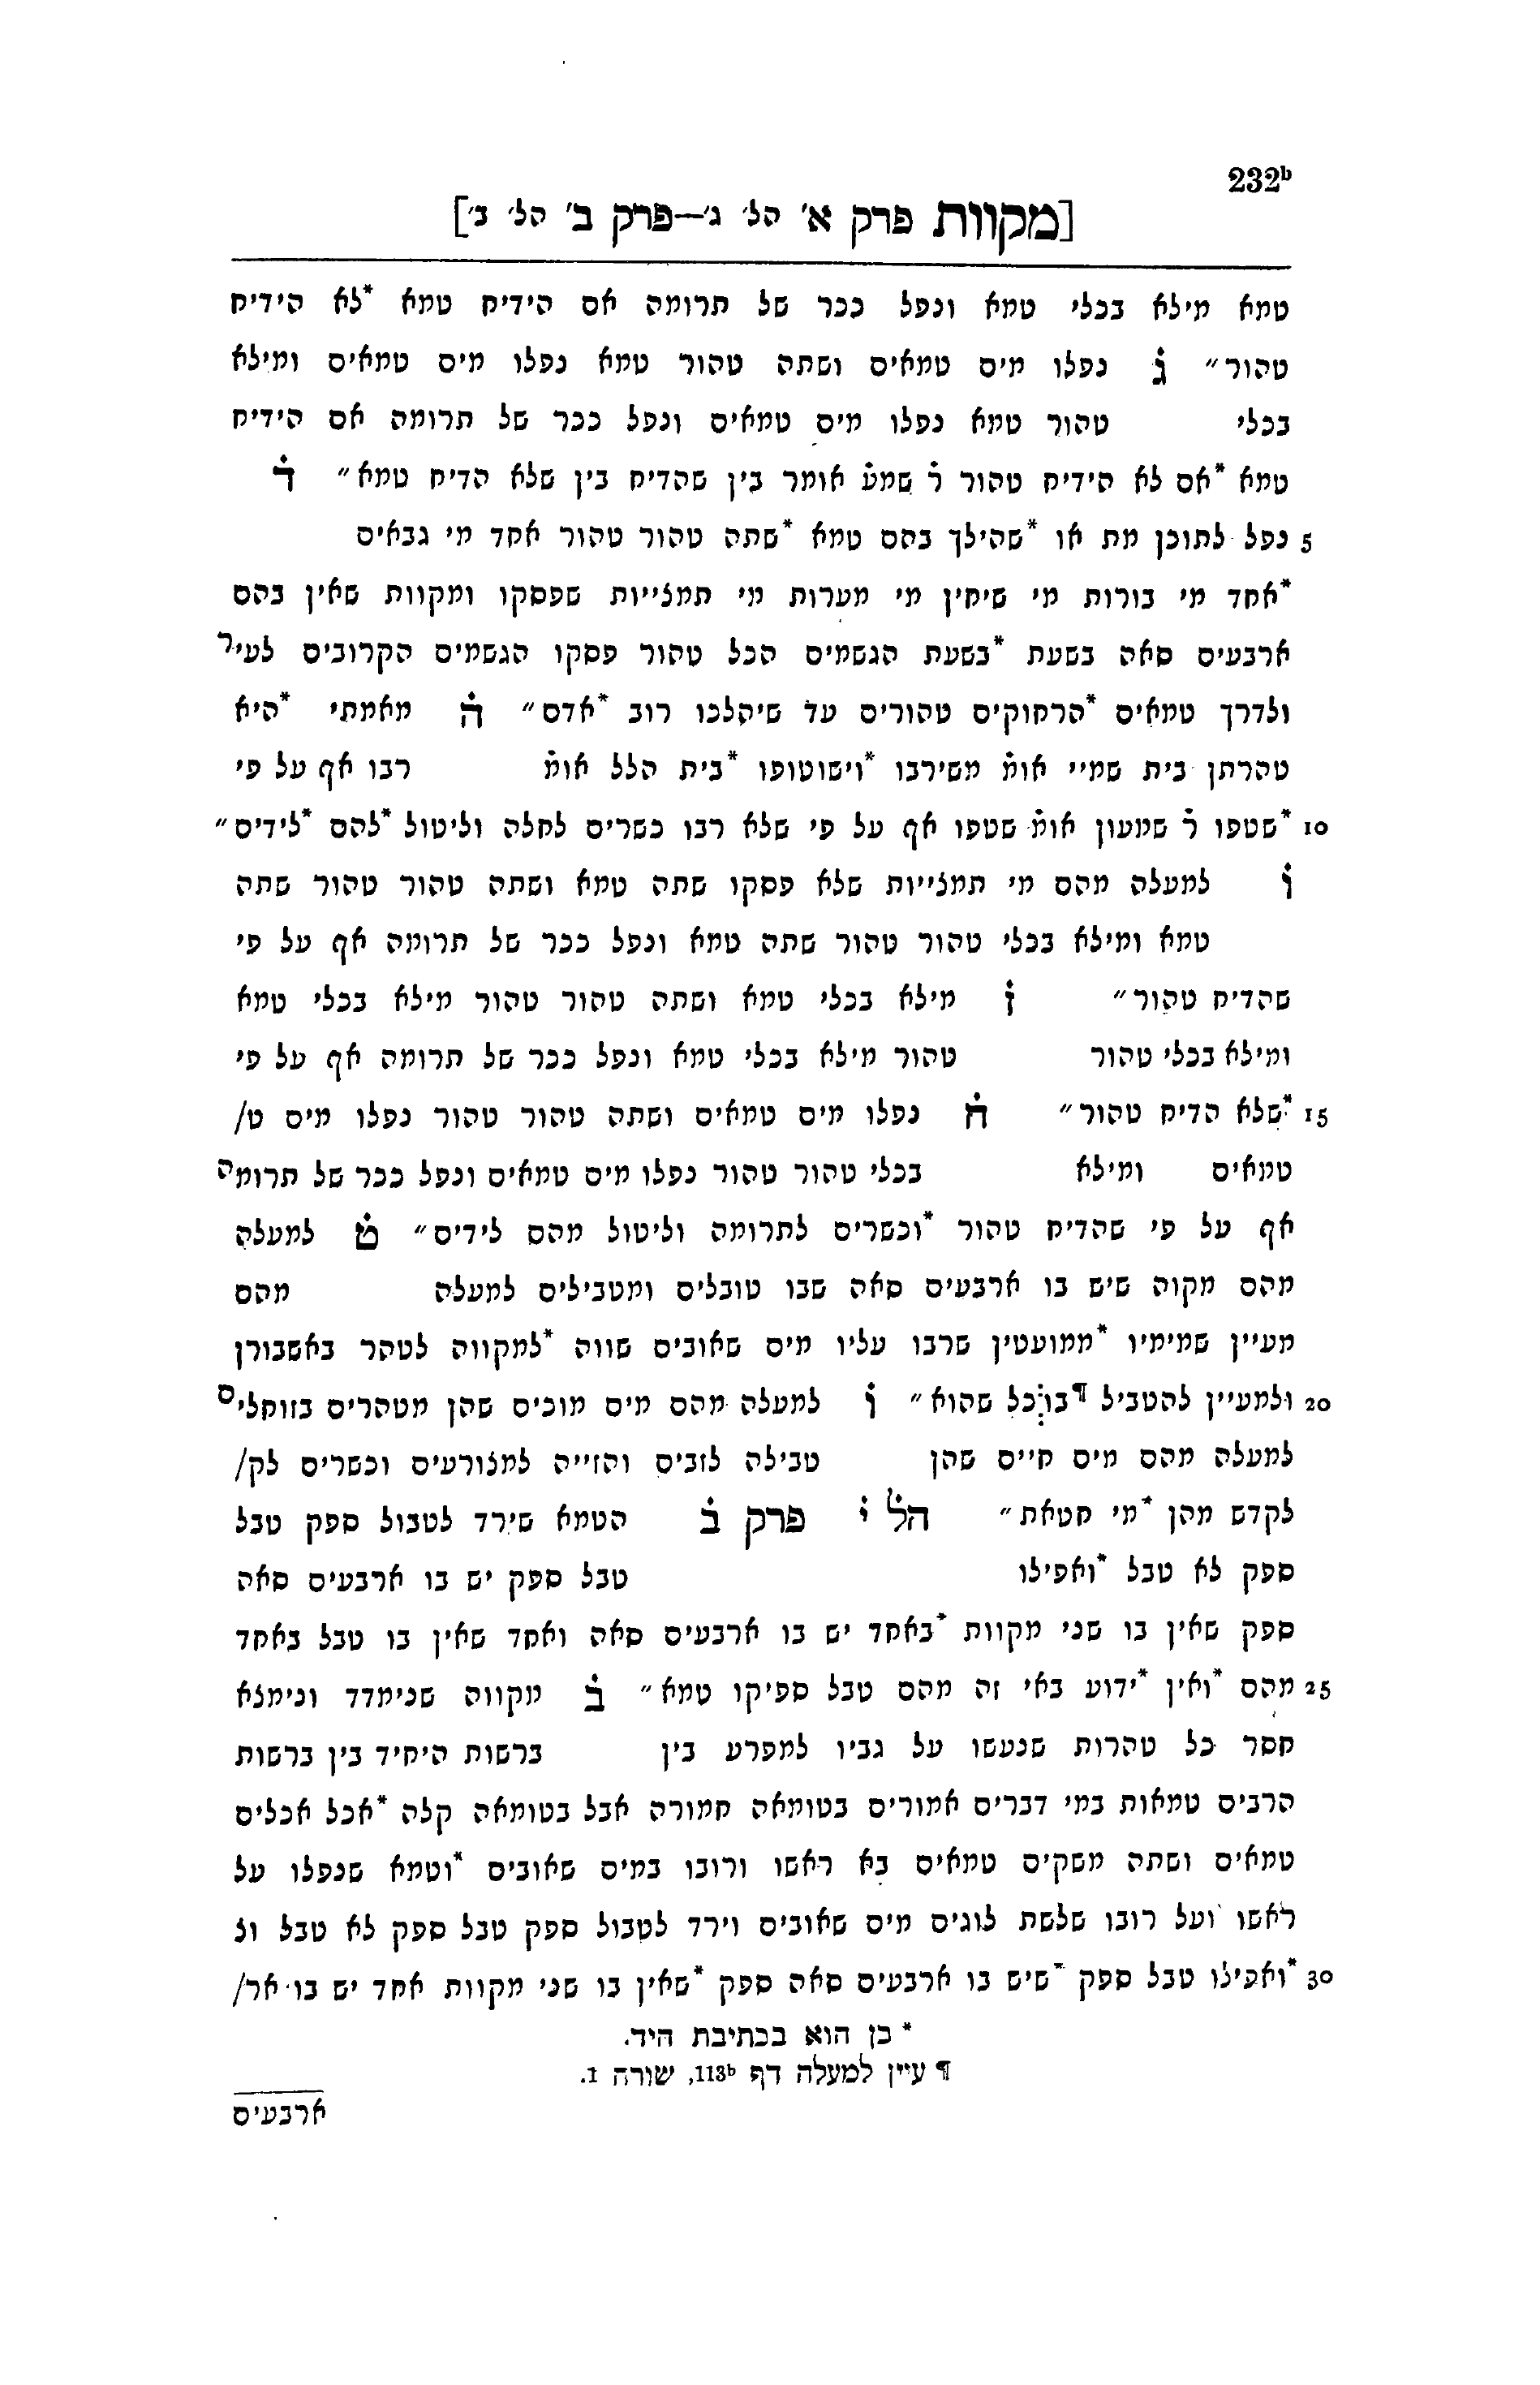 232b
[מקוות פרק א' הל' ג'—פרק ב' הל' ב']
טמא מילא בכלי טמא ונפל ככר של תרומה אם הידיח טמא *לא הידיח
טהור״ ג נפלו מים טמאים ושתה טהור טמא נפלו מים טמאים ומילא
בכלי טהור טמא נפלו מים טמאים ונפל ככר של תרומה אם הידיח
טמא *אם לא הידיח טהור ר̇ שמע̇ אומר בין שהדיח בין שלא הדיח טמא״ ד
5 נפל לתוכן מת או *שהילך בהם טמא *שתה טהור טהור אחד מי גבאים
*אחד מי בורות מי שיחין מי מערות מי תמצייות שפסקו ומקוות שאין בהם
ארבעים סאה בשעת *בשעת הגשמים הכל טהור פסקו הגשמים הקרובים לעיר
ולדרך טמאים *הרחוקים טהורים עד שיהלכו רוב *אדם״ ה מאמתי *היא
טהרתן בית שמיי אומ̇ משירבו *וישוטופו *בית הלל אומ̇ רבו אף על פי
10 *שטפו ר̇ שמעון אומ̇ שטפו אף על פי שלא רבו כשרים לחלה וליטול *להם *לידים״
ו למעלה מהם מי תמצייות שלא פסקו שתה טמא ושתה טהור טהור שתה
טמא ומילא בכלי טהור טהור שתה טמא ונפל ככר של תרומה אף על פי
שהדיח טהור״ ז מילא בכלי טמא ושתה טהור טהור מילא בכלי טמא
ומילא בכלי טהור טהור מילא בכלי טמא ונפל ככר של תרומה אף על פי
15 *שלא הדיח טהור״ ח נפלו מים טמאים ושתה טהור טהור נפלו מים ט/
טמאים ומילא בכלי טהור טהור נפלו מים טמאים ונפל ככר של תרומה
אף על פי שהדיח טהור *וכשרים לתרומה וליטול מהם לידים״ ט למעלה
מהם מקוה שיש בו ארבעים סאה שבו טובלים ומטבילים למעלה מהם
מעיין שמימיו *ממועטין שרבו עליו מים שאובים שווה *למקווה לטהר באשבורן
20 ולמעיין להטביל ¶בו̇כל שהוא״ ו למעלה מהם מים מוכים שהן מטהרים בזוחלים
למעלה מהם מים חיים שהן טבילה לזבים והזייה למצורעים וכשרים לק/
לקדש מהן *מי חטאת״ הל י פרק ב הטמא שירד לטבול ספק טבל
ספק לא טבל *ואפילו טבל ספק יש בו ארבעים סאה
ספק שאין בו שני מקוות *באחד יש בו ארבעים סאה ואחד שאין בו טבל באחד
25 מהם *ואין *ידוע באי זה מהם טבל ספיקו טמא״ ב מקווה שנימדד ונימצא
חסר כל טהרות שנעשו על גביו למפרע בין ברשות היחיד בין ברשות
הרבים טמאות במי דברים אמורים בטומאה חמורה אבל בטומאה קלה *אכל אכלים
טמאים ושתה משקים טמאים בא ראשו ורובו במים שאובים *וטמא שנפלו על
ראשו ועל רובו שלשת לוגים מים שאובים וירד לטבול ספק טבל ספק לא טבל ול
30 *ואפילו טבל ספק *שיש בו ארבעים סאה ספק *שאין בו שני מקוות אחד יש בו אר/
* כן הוא בכתיבת היד.
¶ עיין למעלה דף 113b, שורה 1.
ארבעים